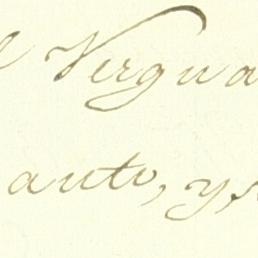 Vergua
auto, y